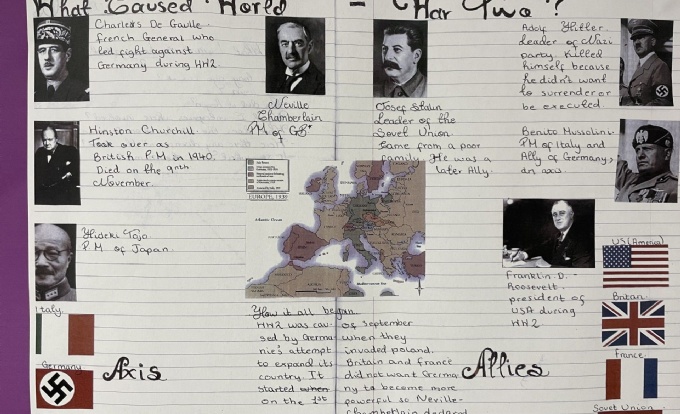 What Caused World - War Two?
Charles De Gaulle
french General who
led fight against
Germany during WW2
Neville
Chamberlain
PM of GB
Josef Stalin
Leader of the
Soviet Union
Came from a poor
family. He was a
later Ally.
Adolf Hitler.
Leader of Nazi
party. Killed
himself because
he didn't want
to surrender or
be executed.
Winston Churchill
Took over as
British P.M in 1940.
Died on the 9nth
November.
Benito Mussolini.
PM of Italy and
Ally of Germany,
an axis.
Hideki Tojo
P.M of Japan.
EUROPE, 1939
Atlantic Ocean
Franklin D. -
Roosevelt.
president of
USA during
WW2
US (America)
Britain
France
Soviet Union
Italy.
Germany
Axis
Allies
How it all began
WW2 was cau-
sed by Germa
nie's attempt
to expand its
country. It
started when
on the 1st
of September
when they
invaded poland.
Britain and france
did not want Germa
ny to become more
powerful so Neville-
Chamberlain declared